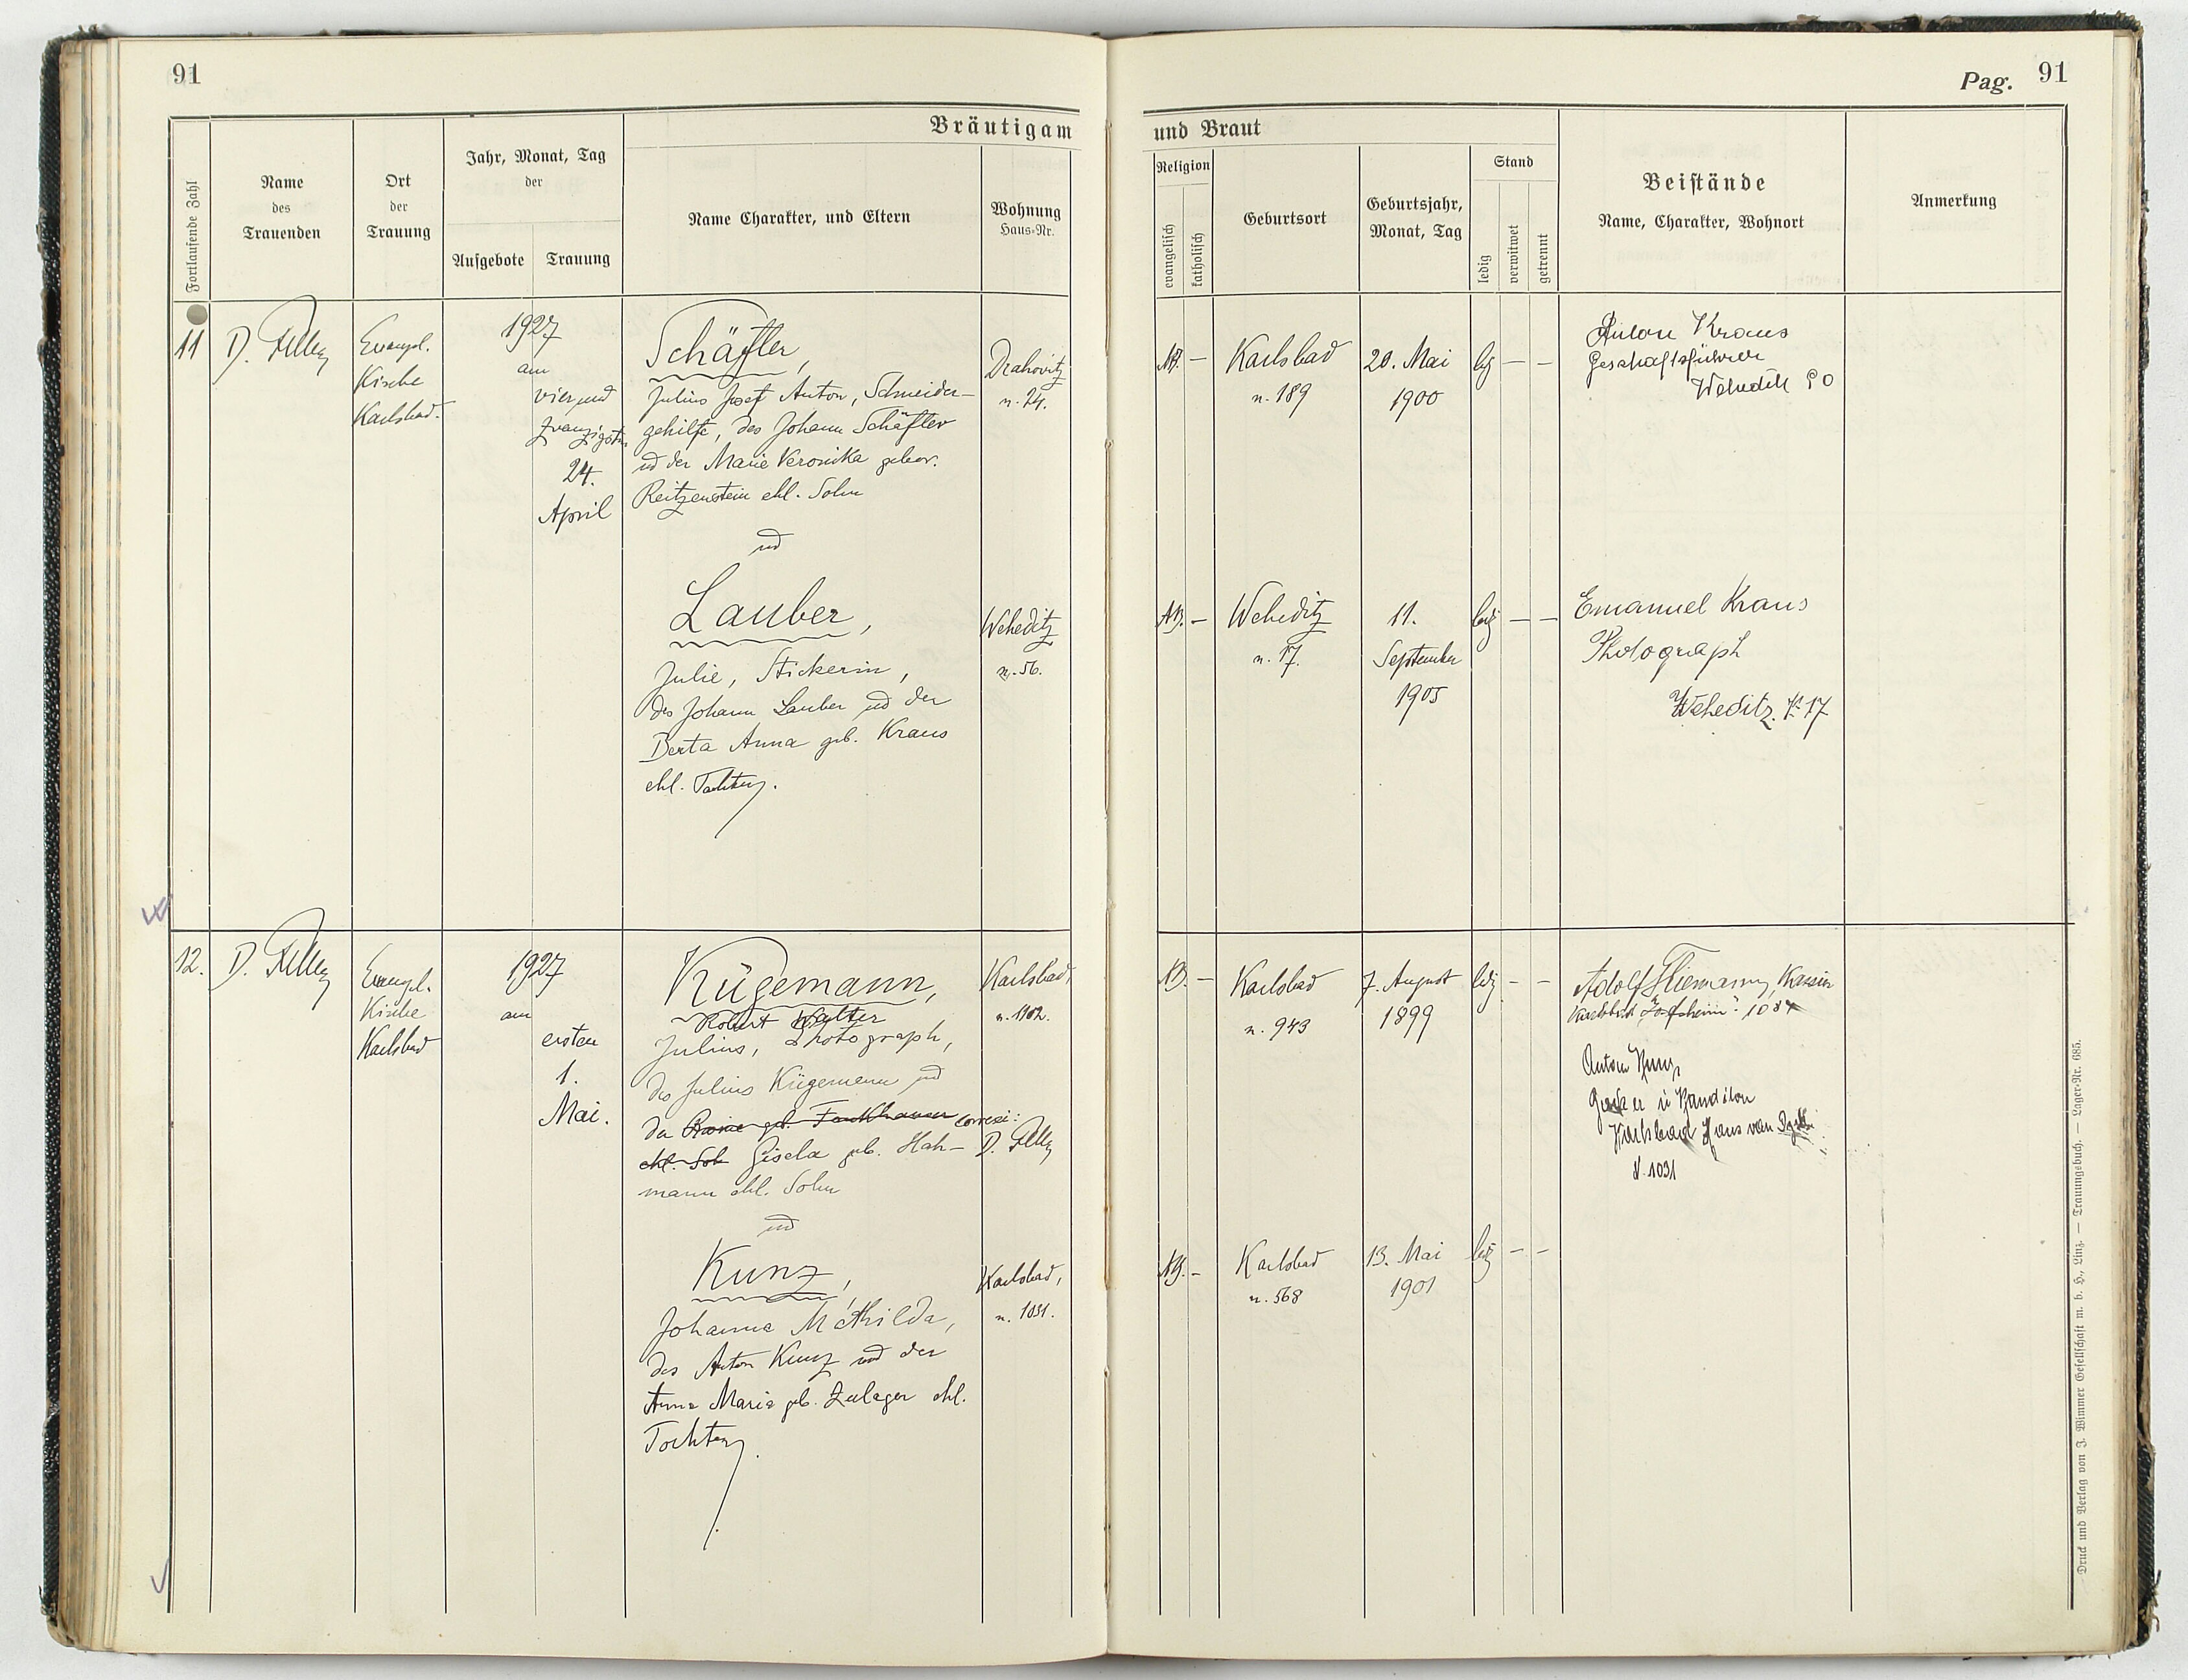 91
Pag. 91
Bräutigam und Braut
Fortlaufende Zahl
Name
des
Trauenden
Ort
der
Trauung
Jahr, Monat, Tag
der
Aufgebote
Trauung
Name Charakter, und Eltern
Wohnung
Haus-Nr.
Religion
evangelisch
katholisch
Geburtsort
Geburtsjahr,
Monat, Tag
Stand
ledig
verwitwet
getrennt
Beistände
Name, Charakter, Wohnort
Anmerkung
11
Evangel.
Kirche
Karlsbad.
1927
am
vierund
zwanzigsten
24.
April
Schäfler,
Julius Josef Anton, Schneider-
gehilfe, des Johann Schäfler
und der Marie Veronika gebor.
Reitzenstein ehl. Sohn
und
Lauber,
Julie, Stickerin,
des Johann Lauber und der
Berta Anna geb. Kraus
ehl. Tochter.
Drahovitz
n. 24.
Weheditz
n. 56.
AB. —
Karlsbad
n. 189
20. Mai
1900
ledig — —
Anton Kraus
Geschäftsführer
Weheditz
AB. —
Weheditz
n. 17.
11.
September
1905
ledig — —
Emanuel Kraus
Photograph
Weheditz. No 17
12.
Evangel.
Kirche
Karlsbad
1927
am
ersten
1.
Mai.
Kügemann,
Robert Walter
Julius, Photograph,
des Julius Kügemann und
der geb. Fankhauser correxi:
ehl. Soh Gisela geb. Hah- D.
mann ehl. Sohn
und
Kunz,
Johanna Mathilda,
des Anton Kunz und der
Anna Maria geb. Zulager ehl.
Tochter.
Karlsbad,
n. 1102.
Karlsbad,
n. 1031.
AB. —
Karlsbad
n. 943
7. August
1899
ledig — —
Adolf Kassier
Karlsbad
Anton Kunz
Karlsbad Haus
N. 1031
AB. —
Karlsbad
n. 568
13. Mai
1901
ledig — —
Druck und Verlag von J. Wimmer Gesellschaft m. b. H., Linz. — Trauungsbuch. — Lager-Nr. 685.